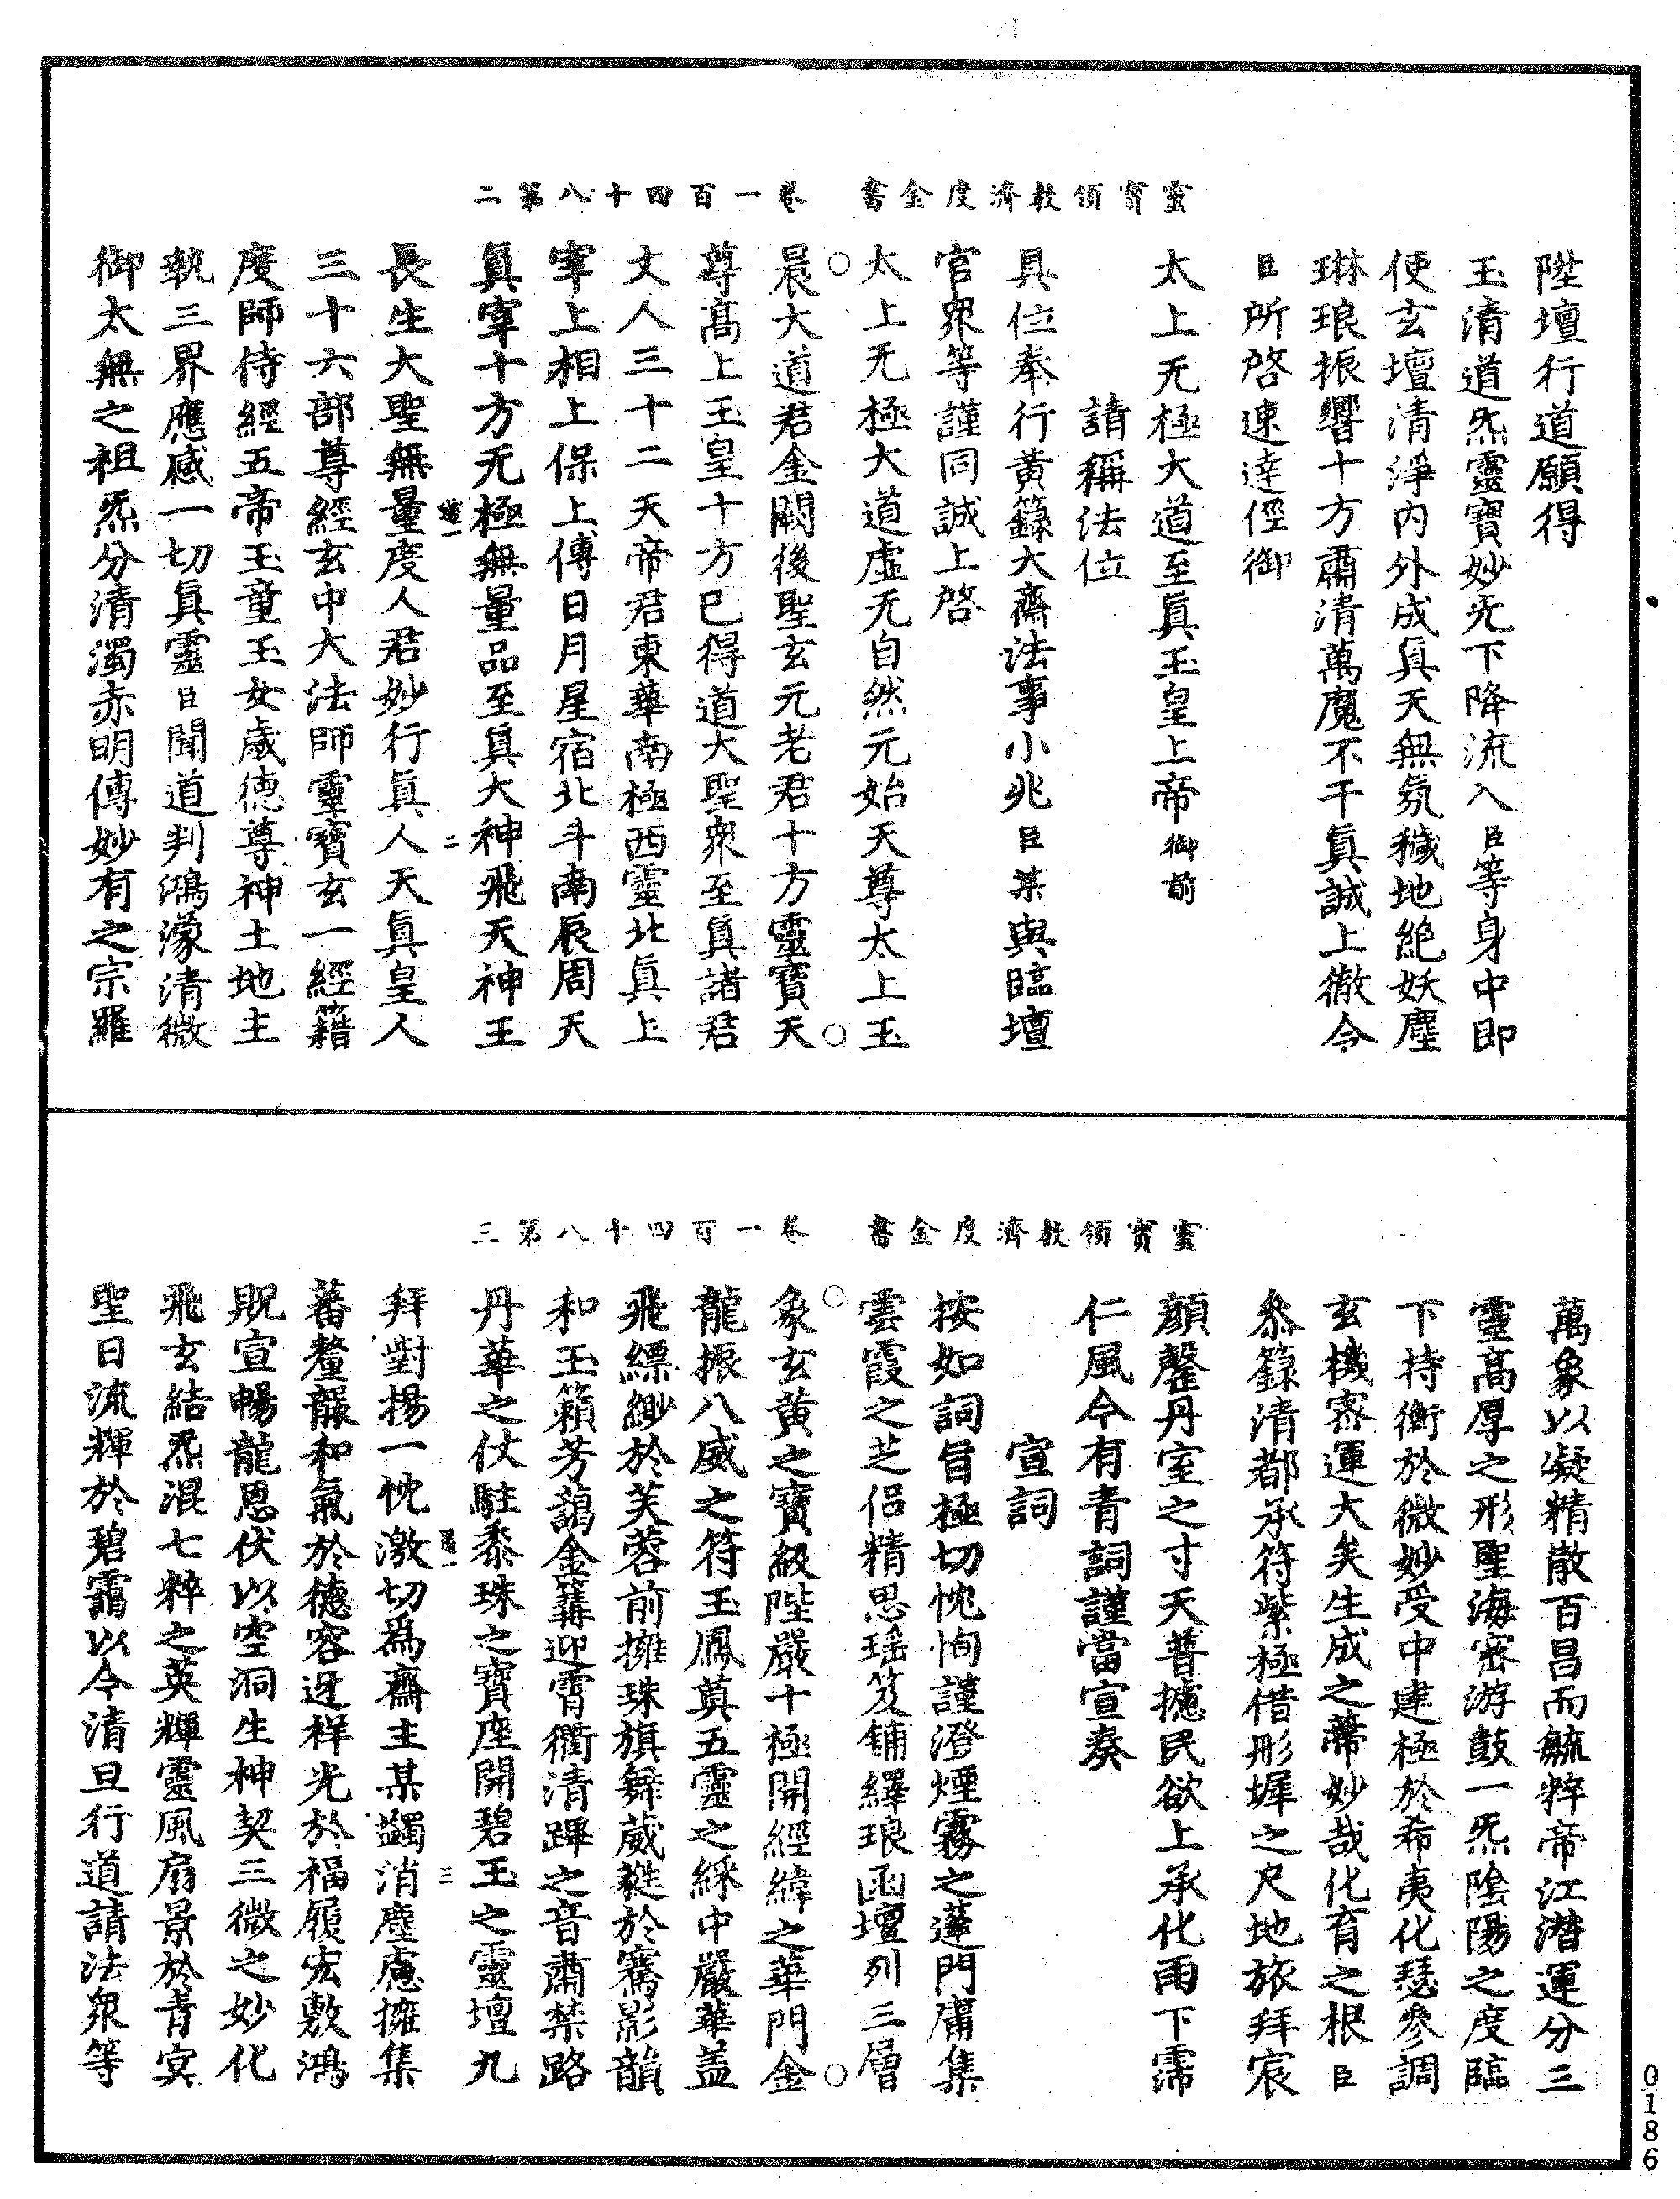 靈寶領教濟度金書　卷一百四十八第二
陞壇行道願得
玉清道炁靈寶妙光下降流入臣等身中即
使玄壇清淨內外成真天無氛穢地絕妖塵
琳琅振響十方肅清萬魔不干真誠上徹今
臣所啓速達徑御
太上无極大道至真玉皇上帝御前
請稱法位
具位奉行黃籙大齋法事小兆臣某與臨壇
官衆等謹同誠上啓
太上无極大道虛无自然元始天尊太上玉
晨大道君金闕後聖玄元老君十方靈寶天
尊高上玉皇十方已得道大聖衆至真諸君
丈人三十二天帝君東華南極西靈北真上
宰上相上保上傅日月星宿北斗南辰周天
真宰十方无極無量品至真大神飛天神王
長生大聖無量度人君妙行真人天真皇人
三十六部尊經玄中大法師靈寶玄一經籍
度師侍經五帝玉童玉女歲德尊神土地主
執三界應感一切真靈臣聞道判鴻濛清微
御太無之祖炁分清濁赤明傳妙有之宗羅
靈寶領教濟度金書　卷一百四十八第三
萬象以凝精散百昌而毓粹帝江潛運分三
靈高厚之形聖海密游鼓一炁陰陽之度臨
下持衡於微妙受中建極於希夷化瑟參調
玄機密運大矣生成之蔕妙哉化育之根臣
叅籙清都承符紫極借形墀之尺地旅拜宸
顏罄丹室之寸天普攄民欲上承化雨下霈
仁風今有青詞謹當宣奏
宣詞
按如詞旨極切忱恂謹澄煙霧之蓬門庸集
雲霞之芝侶精思瑤笈鋪繹琅函壇列三層
象玄黃之寶級陛嚴十極開經緯之華門金
龍振八威之符玉鳳奠五靈之綵中嚴華蓋
飛縹緲於芙蓉前擁珠旗舞葳蕤於騫影韻
和玉籟芳藹金篝迎霄衢清蹕之音肅禁路
丹華之仗駐黍珠之寶座開碧玉之靈壇九
拜對揚一忱激切爲齋主某蠲消塵慮擁集
蕃釐靄和氣於德容迓祥光於福履宏敷鴻
貺宣暢龍恩伏以空洞生神契三微之妙化
飛玄結炁混七粹之英輝靈風扇景於青冥
聖日流輝於碧靄以今清旦行道請法衆等
0186